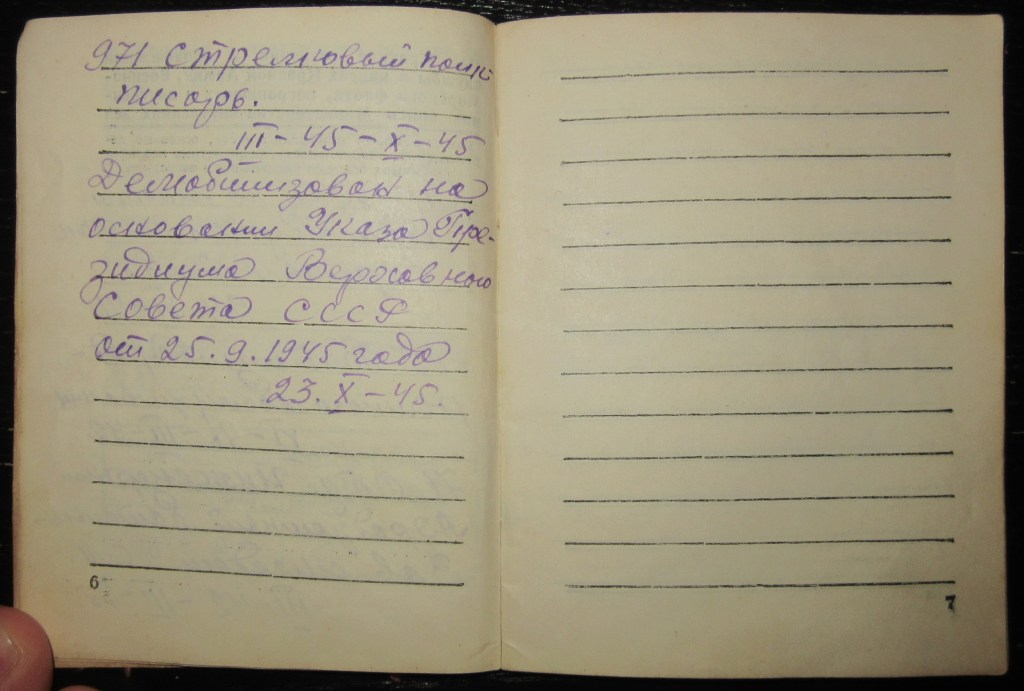 971 стрелковый полк
писарь.
III – 45 – X – 45
Демобилизован на
основании Указа Пре-
зидиума Верховного
Совета СССР
от 25.9.1945 года
23. X – 45.
6
7